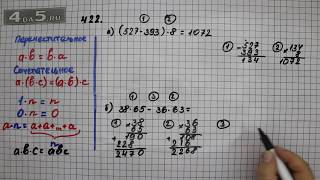 4a5.ru
422.
Переместительное
a·b = b·a
Сочетательное
a·(b·c) = (a·b)·c
1·n = n
0·n = 0
a·n = a+a+...+a
n
a·b·c = abc
① ②
а) (527-393)·8 = 1072
① - 527
393
134
② × 134
8
1072
① ③ ②
б) 38·65 - 36·63 =
① × 38
65
+ 190
228
2470
② × 36
63
+ 108
216
2268
③